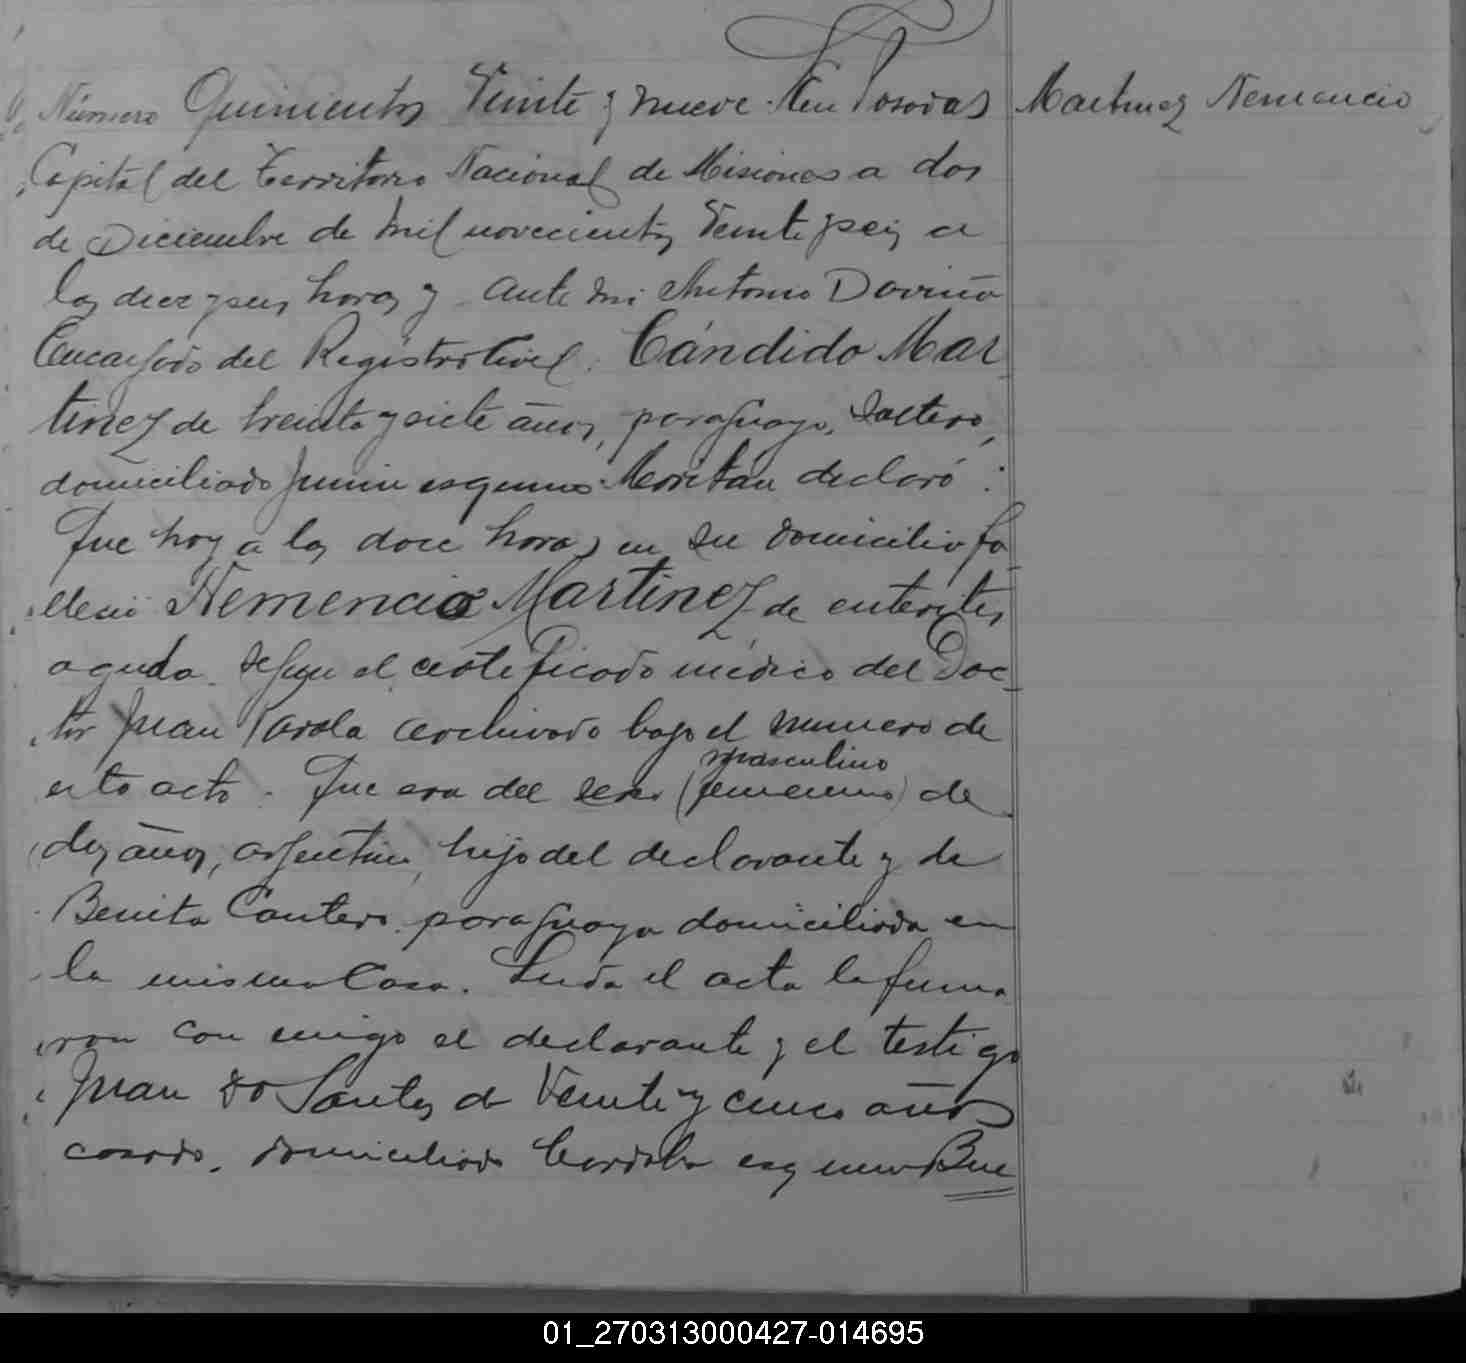 Número Quinientos Veinte y nueve. En Posadas
Martinez Nemencio
Capital del Territorio Nacional de Misiones a dos
de Diciembre de mil novecientos veinte y seis a
las diez y seis horas y ante mi Antonio Daviña
Encargado del Registro Civil. Cándido Mar
tinez de treinta y siete años, paraguayo, soltero,
domiciliado Junin esquina Moritan declaró:
Que hoy a las doce horas en su domicilio fa
lleció Nemencio Martinez de enteritis
aguda. segun el certificado médico del Doc-
tor Juan Parola archivado bajo el numero de
esta acta. Que era del sexo masculino (femenino) de
dos años, argentino, hijo del declarante y de
Benita Cantero. paraguaya domiciliada en
la misma Casa. Leida el acta la firma
ron con migo el declarante y el testigo
Juan Do Santos de veinte y cinco años
casado. domiciliado Cordoba esquina Bue
01_270313000427-014695